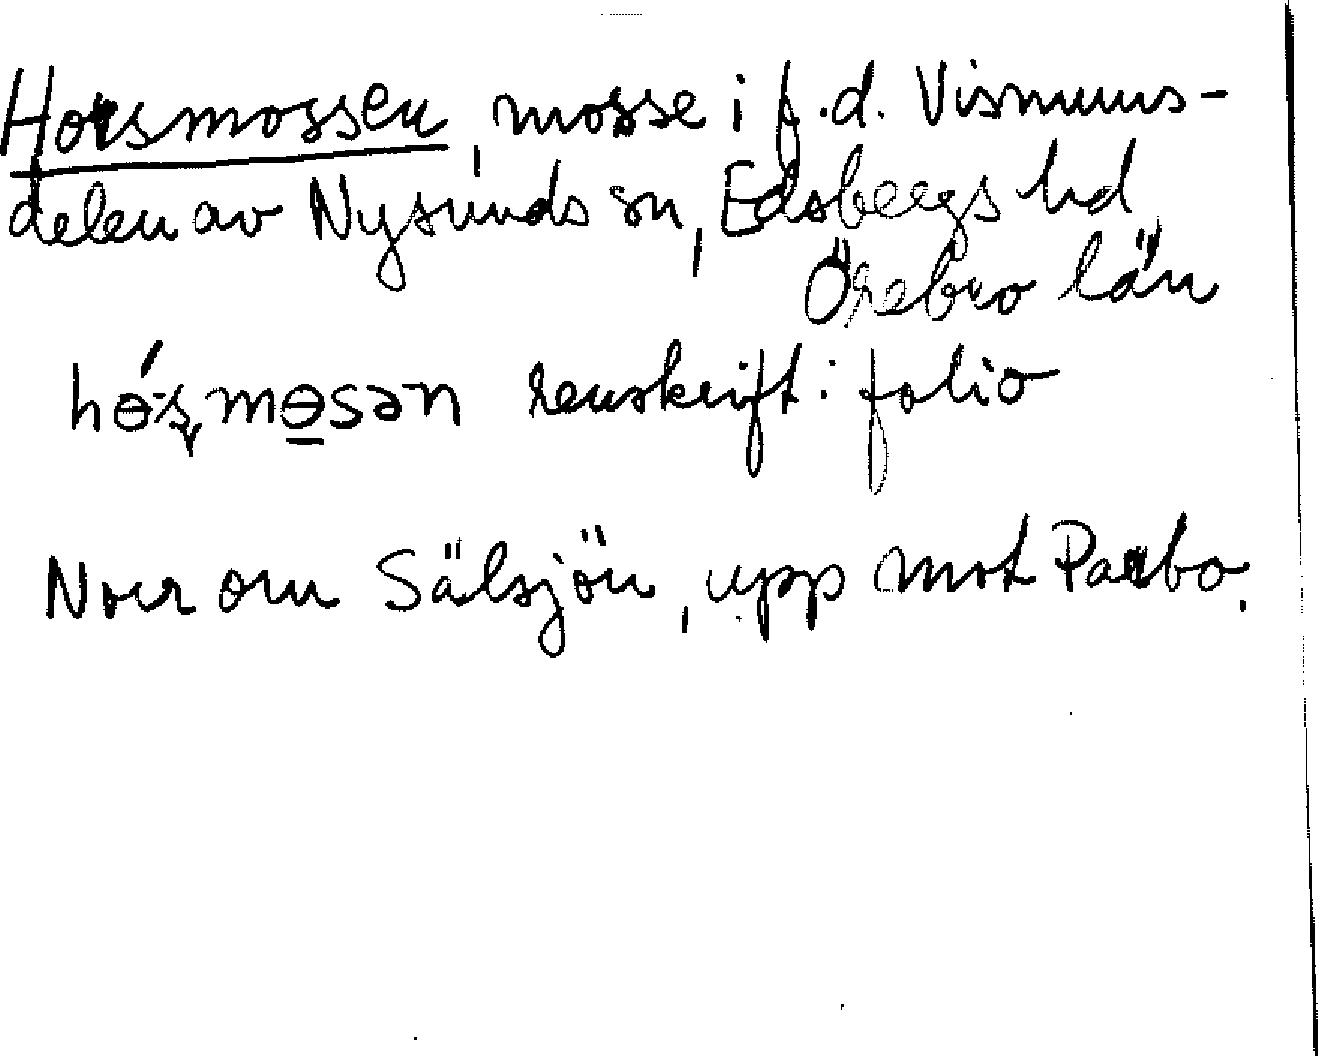 Horsmossen, mosse i f.d. Vismums-
delen av Nysunds sn, Edsbergs hd
Örebro län
hө́ʂmөsən renskrift: folio
Norr om Sälsjön, upp mot Parbo.